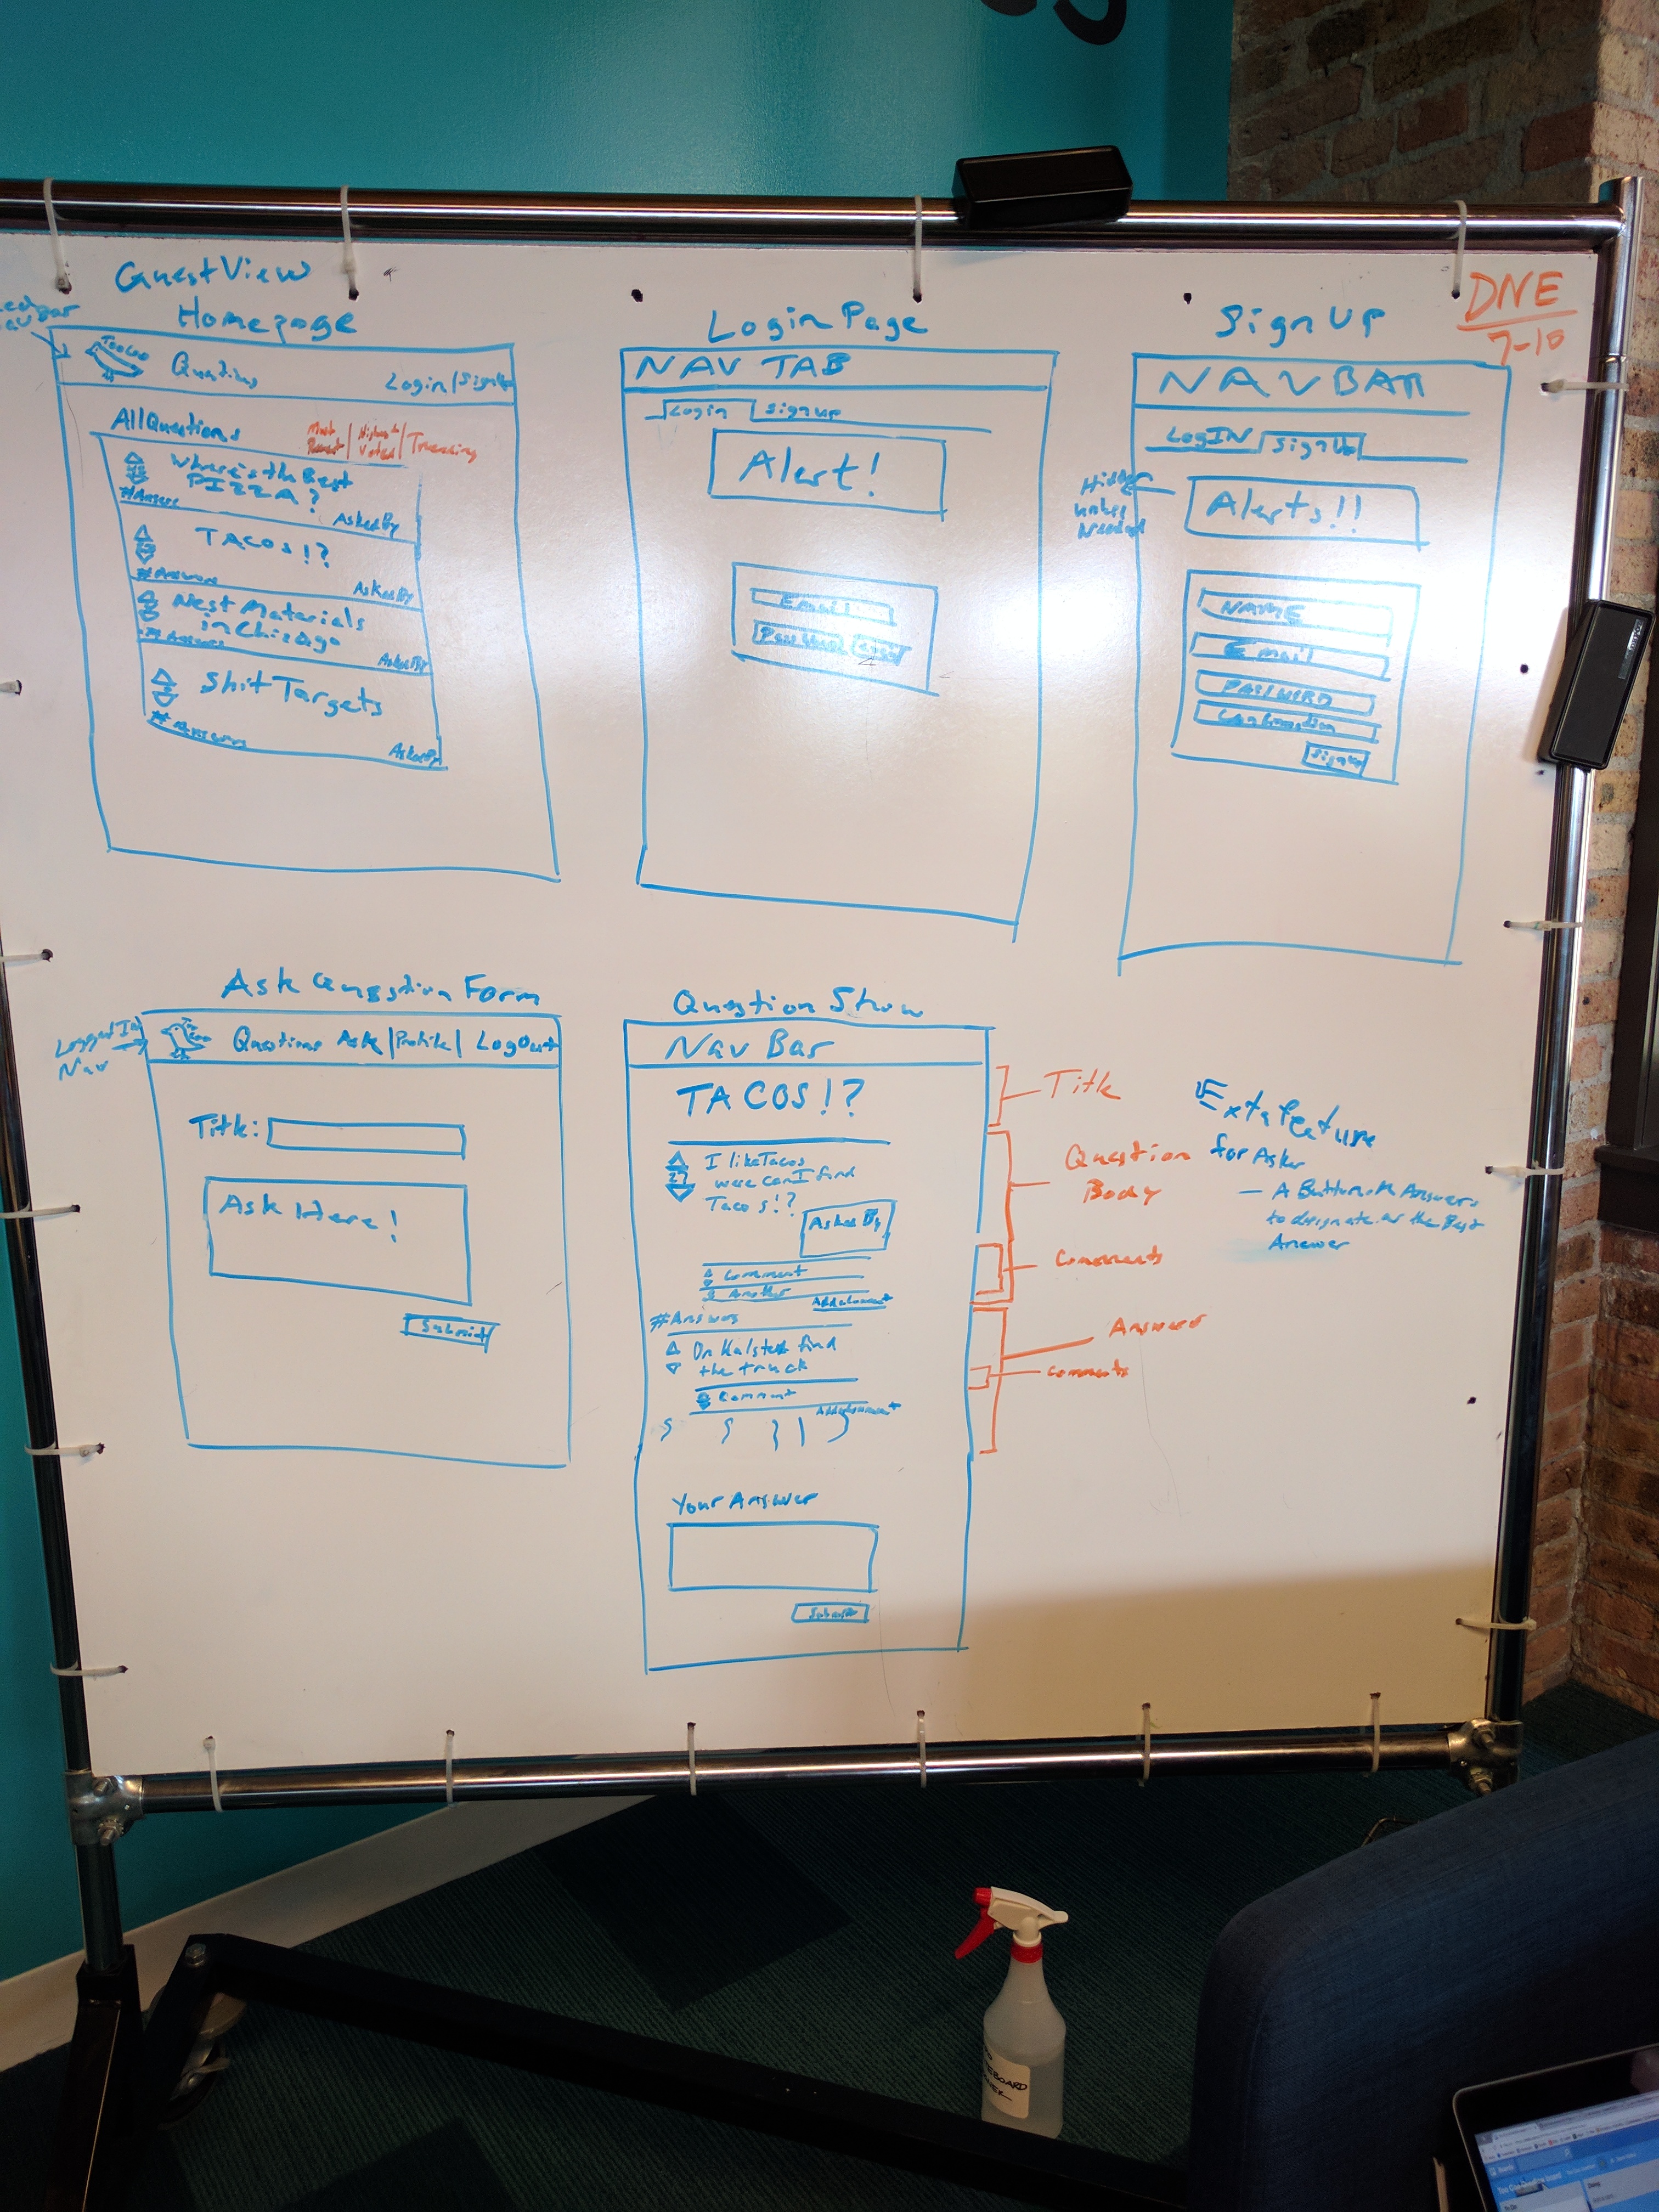 GuestView
Homepage
Questions
Login/SignUp
All Questions
Most Recent | Highest Voted | Trending
Where's the Best
PIZZA?
#Answers
Asked By
TACOS!?
#Answers
Asked By
Nest Materials
in Chicago
#Answers
Asked By
Shit Targets
#Answers
Asked By
Login Page
NAV TAB
Login
Signup
Alert!
Email
Password
Sign Up
NAVBAR
LogIN
SignUp
Alerts!!
Needed
NAME
Email
PASSWORD
Confirmation
SignUp
DNE
7-10
Ask Question Form
Logged In
Nav
Questions Ask |Profile| Logout
Title:
Ask Here!
Submit
Question Show
Nav Bar
TACOS!?
I like Tacos
were can I find
Tacos!?
Asked By
Comment
Another
Add Comment
#Answers
On Halsted find
the truck
Comment
Add Comment
Your Answer
Submit
Title
Question
Body
Comments
Answers
Comments
Extra feature
for Asker
— A Button on Answers
to designate as the Best
Answer